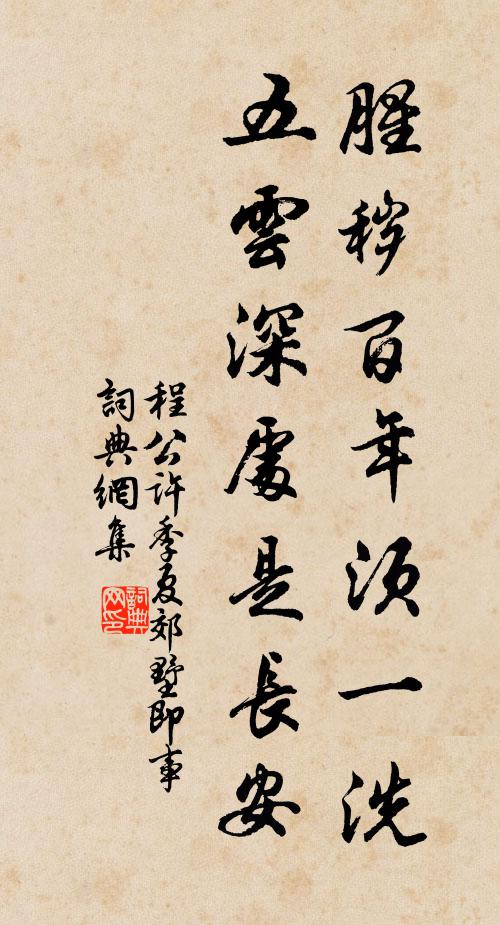 腥秽百年须一洗
五雲深處是長安
程公許季夏郊墅即事
詞典網集
詞典
网印